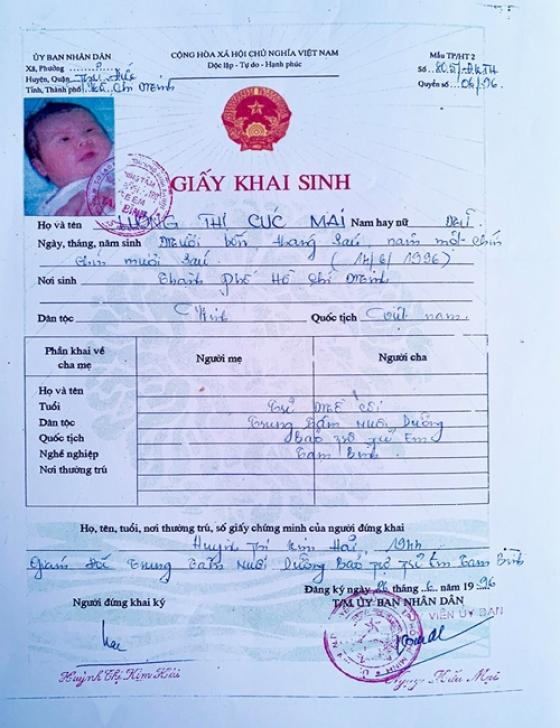 ỦY BAN NHÂN DÂN
Xã, Phường
Huyện, Quận Thủ Đức
Tỉnh, Thành phố Hồ Chí Minh
CỘNG HÒA XÃ HỘI CHỦ NGHĨA VIỆT NAM
Độc lập - Tự do - Hạnh phúc
Mẫu TP/HT 2
Số
Quyển số 06/96
GIẤY KHAI SINH
Họ và tên THỊ CÚC MAI Nam hay nữ Nữ
Ngày, tháng, năm sinh Mười bốn tháng sáu, năm một chín
chín mươi sáu. (14/6/1996)
Nơi sinh Thành Phố Hồ Chí Minh
Dân tộc Kinh Quốc tịch Việt nam.
Phần khai về cha mẹ
Người mẹ
Người cha
Họ và tên
Tuổi
Dân tộc
Quốc tịch
Nghề nghiệp
Nơi thường trú
Trẻ mồ côi
Trung Tâm Nuôi Dưỡng
Bảo trợ trẻ em
Tam Bình.
Họ, tên, tuổi, nơi thường trú, số giấy chứng minh của người đứng khai
Huỳnh Thị Kim Hải, 1944
Giám Đốc Trung Tâm Nuôi Dưỡng Bảo trợ trẻ em Tam Bình
Đăng ký ngày 26 tháng 6 năm 1996
Người đứng khai ký
T/M ỦY BAN NHÂN DÂN
VIÊN ỦY BAN
Huỳnh Thị Kim Hải